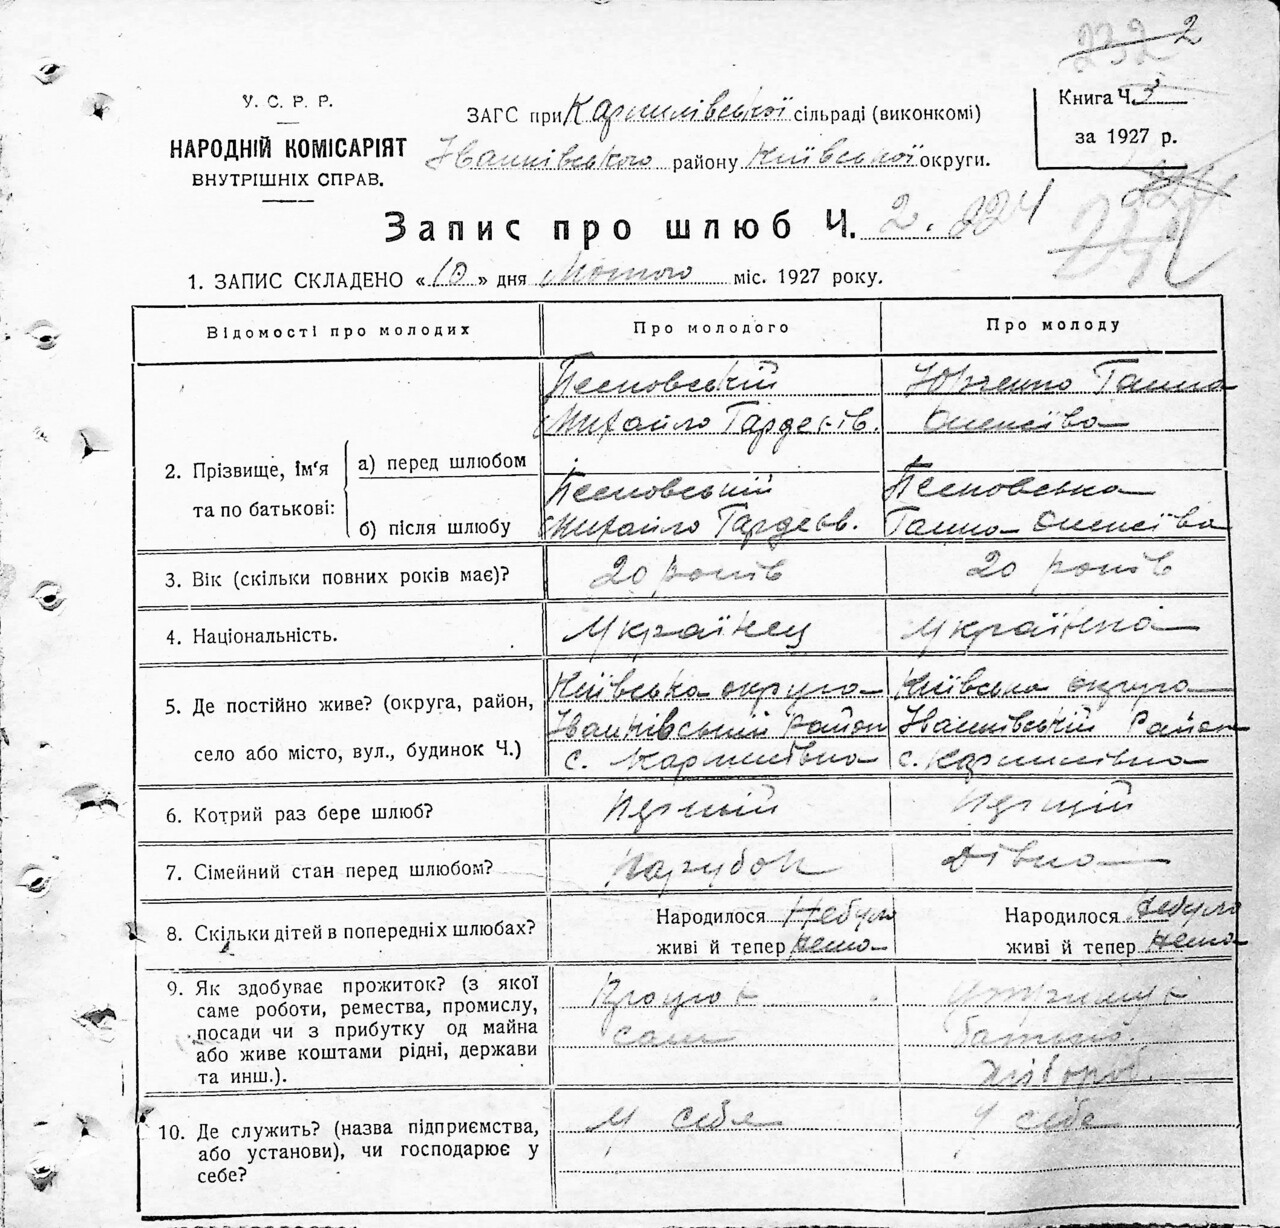 232 2
У. С. Р. Р.
НАРОДНІЙ КОМІСАРІЯТ
ВНУТРІШНІХ СПРАВ.
ЗАГС при Кармилівської сільраді (виконкомі)
Іванківського району Київської округи.
Книга Ч. 3
за 1927 р.
Запис про шлюб Ч. 2. 224
224
1. ЗАПИС СКЛАДЕНО «10» дня Лютого міс. 1927 року.
Відомості про молодих
Про молодого
Про молоду
2. Прізвище, Ім'я
та по батькові:
а) перед шлюбом
Михайло Гардеєв.
Юрченко Ганна
Олексієва
б) після шлюбу
Михайло Гардеєв.
Ганна Олексієва
3. Вік (скільки повних років має)?
20 років
20 років
4. Національність.
Українец
Українка
5. Де постійно живе? (округа, район,
село або місто, вул., будинок Ч.)
Київська округа
Іванківський Район
с. Кармилівка
Київська округа
Іванківській Район
с. Кармилівка
6. Котрий раз бере шлюб?
Первій
Перший
7. Сімейний стан перед шлюбом?
Парубок
Дівка
8. Скільки дітей в попередніх шлюбах?
Народилося Небуло
живі й тепер нема
Народилося Небуло
живі й тепер нема
9. Як здобуває прожиток? (з якої
саме роботи, ремества, промислу,
посади чи з прибутку од майна
або живе коштами рідні, держави
та инш.).
сам
хлібороб.
10. Де служить? (назва підприємства,
або установи), чи господарює у
себе?
У себя
У себе